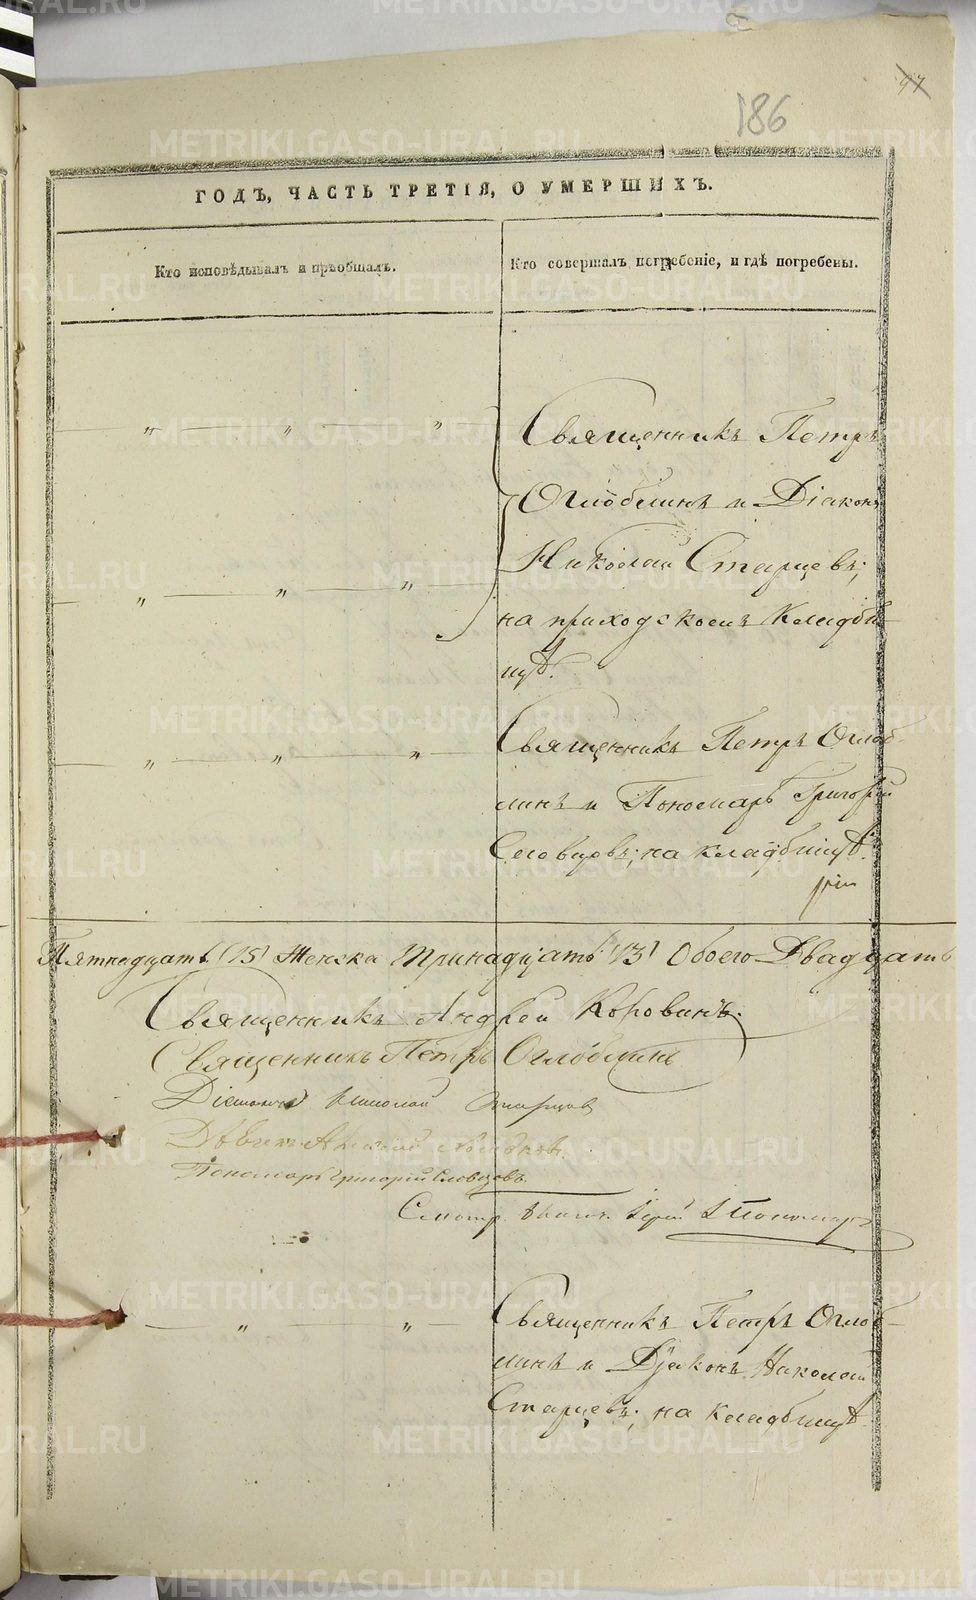 97
186
ГОДЪ, ЧАСТЬ ТРЕТІЯ, О УМЕРШИХЪ.
Кто исповѣдывалъ и пріобщалъ.
Кто совершалъ погребеніе, и гдѣ погребены.
Священникъ Петръ
Оглоблинъ и Діаконъ
Николай Старцевъ;
на приходскомъ кладби-
щѣ.
Священникъ Петръ Оглоб-
линъ и Пономарь Григорій
Словцовъ; на кладбищѣ.
Пятнадцать (15) Женска тринадцать (13) Обоего Двадцать
Священникъ Андрей Коровинъ.
Священникъ Петръ Оглоблинъ
Діаконъ Николай Старцов
Пономарь Григорій Словцовъ
Смотр.
Священникъ Петръ Оглоб-
линъ и Діаконъ Николай
Старцевъ; на кладбищѣ.
METRIKI.GASO-URAL.RU